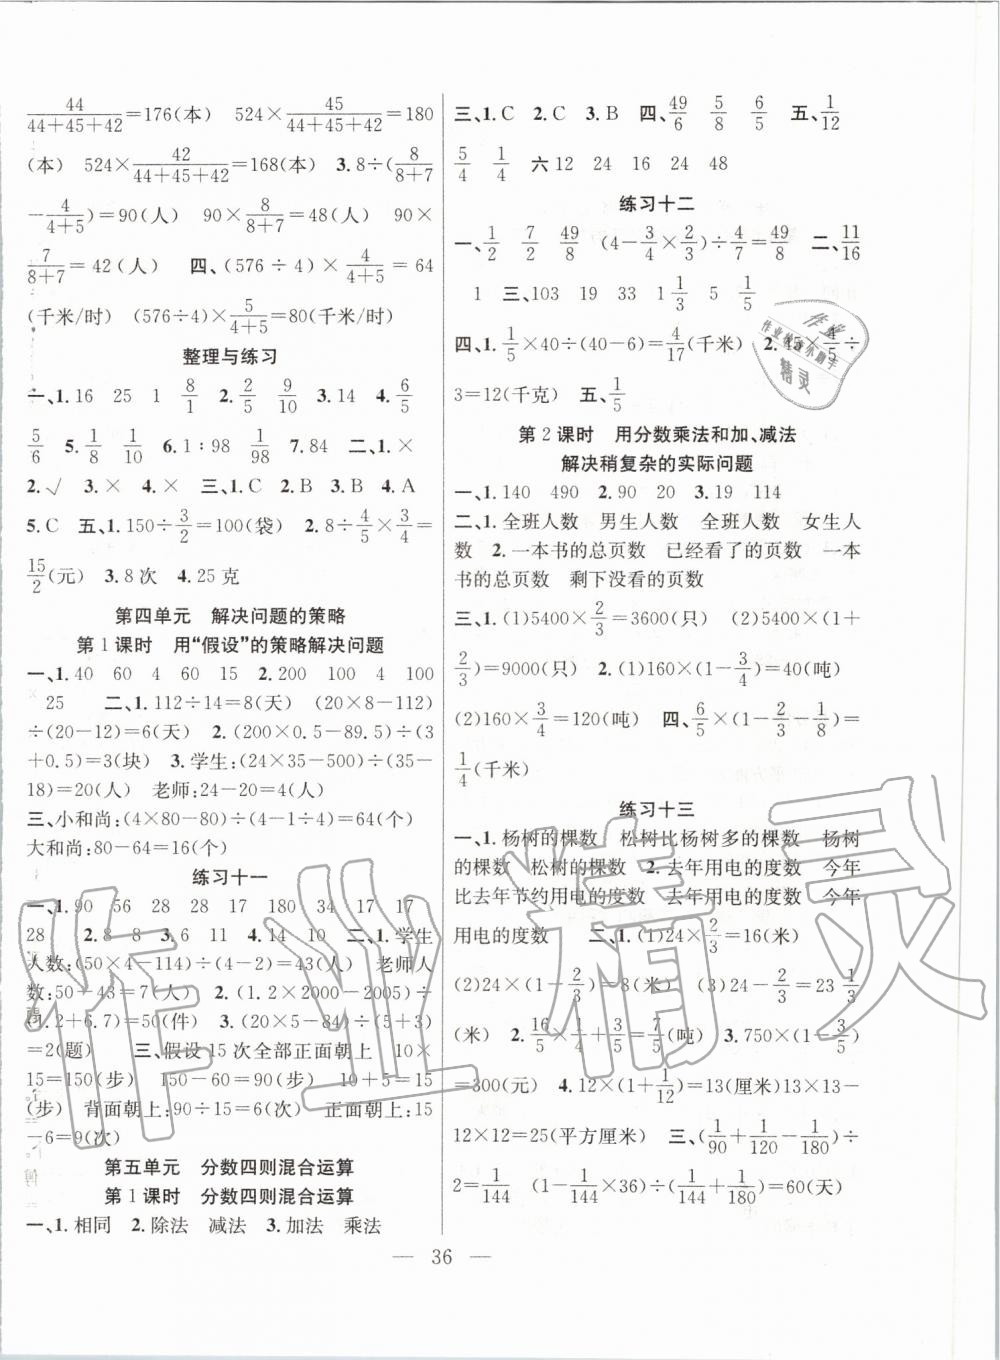 44/(44+45+42)=176(本) 524×45/(44+45+42)=180
(本) 524×42/(44+45+42)=168(本) 3.8÷(8/(8+7)
-4/(4+5))=90(人) 90×8/(8+7)=48(人) 90×
7/(8+7)=42(人) 四、(576÷4)×4/(4+5)=64
(千米/时) (576÷4)×5/(4+5)=80(千米/时)
整理与练习
一、1.16 25 1 8/1 2.2/5 9/10 3.14 4.6/5
5/6 5.1/8 1/10 6.1∶98 1/98 7.84 二、1.×
2.√ 3.× 4.× 三、1.C 2.B 3.B 4.A
5.C 五、1.150÷3/2=100(袋) 2.8÷4/5×3/4=
15/2(元) 3.8次 4.25克
第四单元 解决问题的策略
第1课时 用“假设”的策略解决问题
一、1.40 60 4 60 15 2.200 100 4 100
25 二、1.112÷14=8(天) (20×8-112)
÷(20-12)=6(天) 2.(200×0.5-89.5)÷(3
+0.5)=3(块) 3.学生:(24×35-500)÷(35-
18)=20(人) 老师:24-20=4(人)
三、小和尚:(4×80-80)÷(4-1÷4)=64(个)
大和尚:80-64=16(个)
练习十一
一、1.90 56 28 28 17 180 34 17 17
28 2.8 8 3.6 11 4.14 10 二、1.学生
人数:(50×4-114)÷(4-2)=43(人) 老师人
数:50-43=7(人) 2.(1.2×2000-2005)÷
(1.2+6.7)=50(件) 3.(20×5-84)÷(5+3)
=2(题) 三、假设15次全部正面朝上 10×
15=150(步) 150-60=90(步) 10+5=15
(步) 背面朝上:90÷15=6(次) 正面朝上:15
-6=9(次)
第五单元 分数四则混合运算
第1课时 分数四则混合运算
一、1.相同 2.除法 减法 3.加法 乘法
三、1.C 2.C 3.B 四、49/6 5/8 6/5 五、1/12
5/4 1/4 六 12 24 16 24 48
练习十二
一、1/2 7/2 49/8 (4-3/4×2/3)÷4/7=49/8 二、11/16
1 三、103 19 33 1 1/3 5 1/5
四、1.1/5×40÷(40-6)=4/17(千米) 2.15×4/5÷
3=12(千克) 五、1/5
第2课时 用分数乘法和加、减法
解决稍复杂的实际问题
一、1.140 490 2.90 20 3.19 114
二、1.全班人数 男生人数 全班人数 女生人
数 2.一本书的总页数 已经看了的页数 一本
书的总页数 剩下没看的页数
三、1.(1)5400×2/3=3600(只) (2)5400×(1+
2/3)=9000(只) 2.(1)160×(1-3/4)=40(吨)
(2)160×3/4=120(吨) 四、6/5×(1-2/3-1/8)=
1/4(千米)
练习十三
一、1.杨树的棵数 松树比杨树多的棵数 杨树
的棵数 松树的棵数 2.去年用电的度数 今年
比去年节约用电的度数 去年用电的度数 今年
用电的度数 二、1.(1)24×2/3=16(米)
(2)24×(1-2/3)=8(米) (3)24-2/3=23 1/3
(米) 2.16/5×1/4+3/5=7/5(吨) 3.750×(1-3/5)
=300(元) 4.12×(1+1/12)=13(厘米)13×13-
12×12=25(平方厘米) 三、(1/90+1/120-1/180)÷
2=1/144 (1-1/144×36)÷(1/144+1/180)=60(天)
— 36 —
作业
作业精灵
作业精灵